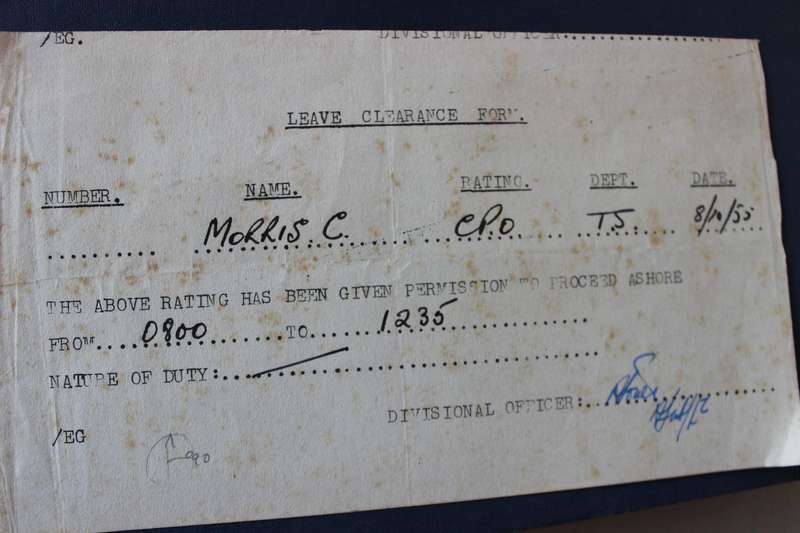 /EG. DIVISIONAL OFFICER:
LEAVE CLEARANCE FORM.
NUMBER. NAME. RATING. DEPT. DATE.
MORRIS C. C.P.O T.S. 8/10/55
THE ABOVE RATING HAS BEEN GIVEN PERMISSION TO PROCEED ASHORE
FROM....0900..........TO......1235
NATURE OF DUTY:
DIVISIONAL OFFICER:
/EG